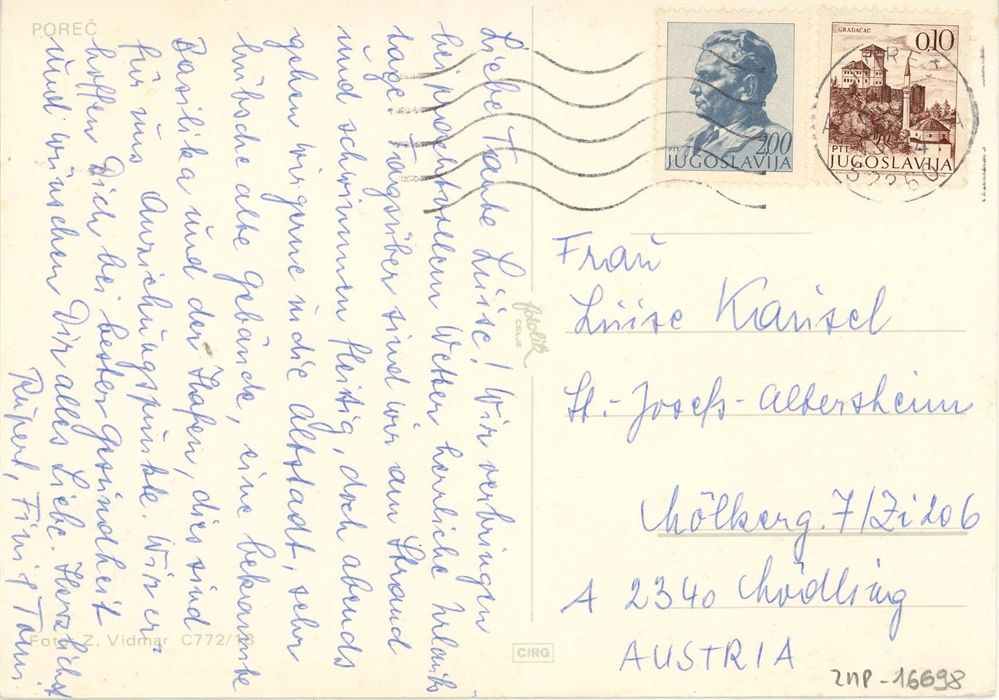 POREČ
Liebe Tante Luise! Wir verbringen
bei prachtvollem Wetter herrliche Urlaubs
tage. Tagsüber sind wir am Strand
und schwimmen fleißig, doch abends
gehen wir gerne in die Altstadt, sehr
hübsche alte Gebäude, eine bekannte
Basilika und der Hafen, dies sind
für uns Anziehungspunkte. Wir er-
hoffen Dich bei bester Gesundheit
und wünschen Dir alles Liebe. Herzlichst
Rupert, Fini & Toni
Foto: Z. Vidmar C772/18
fotolik
CELJE
CIRG
2.00
PTT
JUGOSLAVIJA
GRADAČAC
0.10
PTT
JUGOSLAVIJA
Frau
Luise Kausel
St.-Josefs-Altersheim
Mölkerg. 7/Zi 206
A 2340 Mödling
AUSTRIA
ZMP-16698